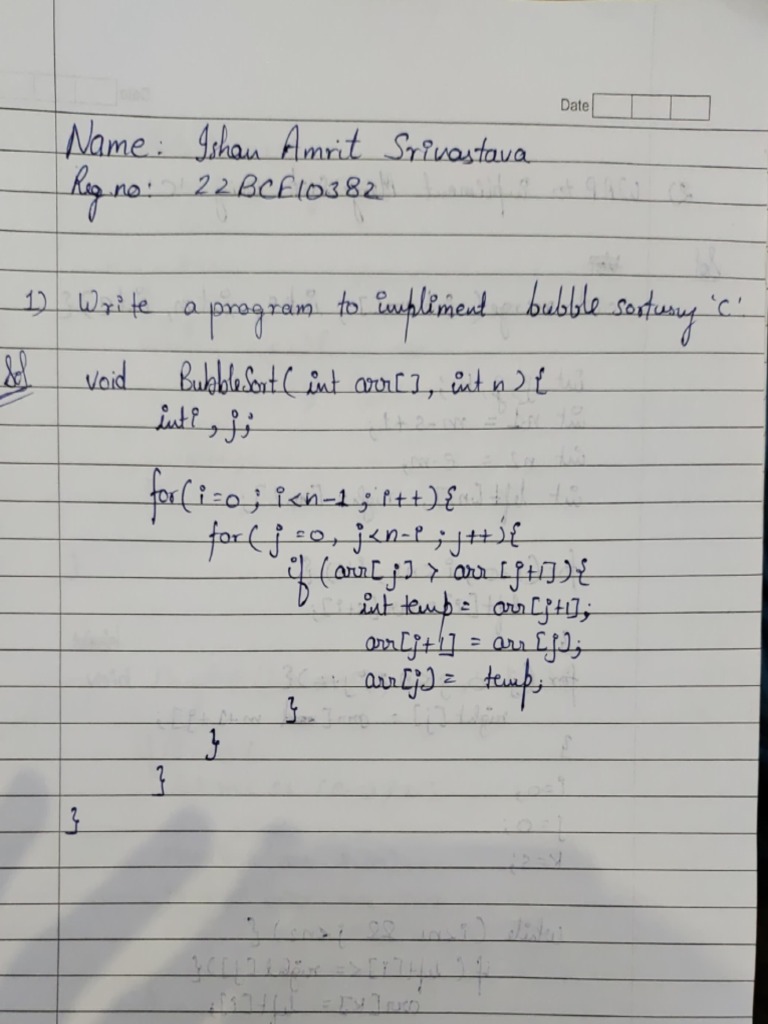 Date
Name: Ishan Amrit Srivastava
Reg.no: 22BCE10382
1) Write a program to impliment bubble sort using 'C'.
Sol void BubbleSort( int arr[], int n ) {
int i, j;
for(i=0; i<n-1; i++){
for( j=0, j<n-i; j++){
if (arr[j] > arr[j+1]){
int temp = arr[j+1];
arr[j+1] = arr[j];
arr[j] = temp;
}
}
}
}